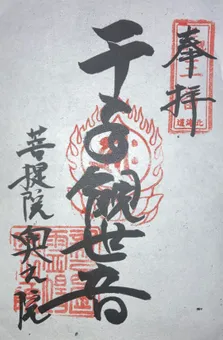 奉拝
千手観世音
菩提院
奥之院